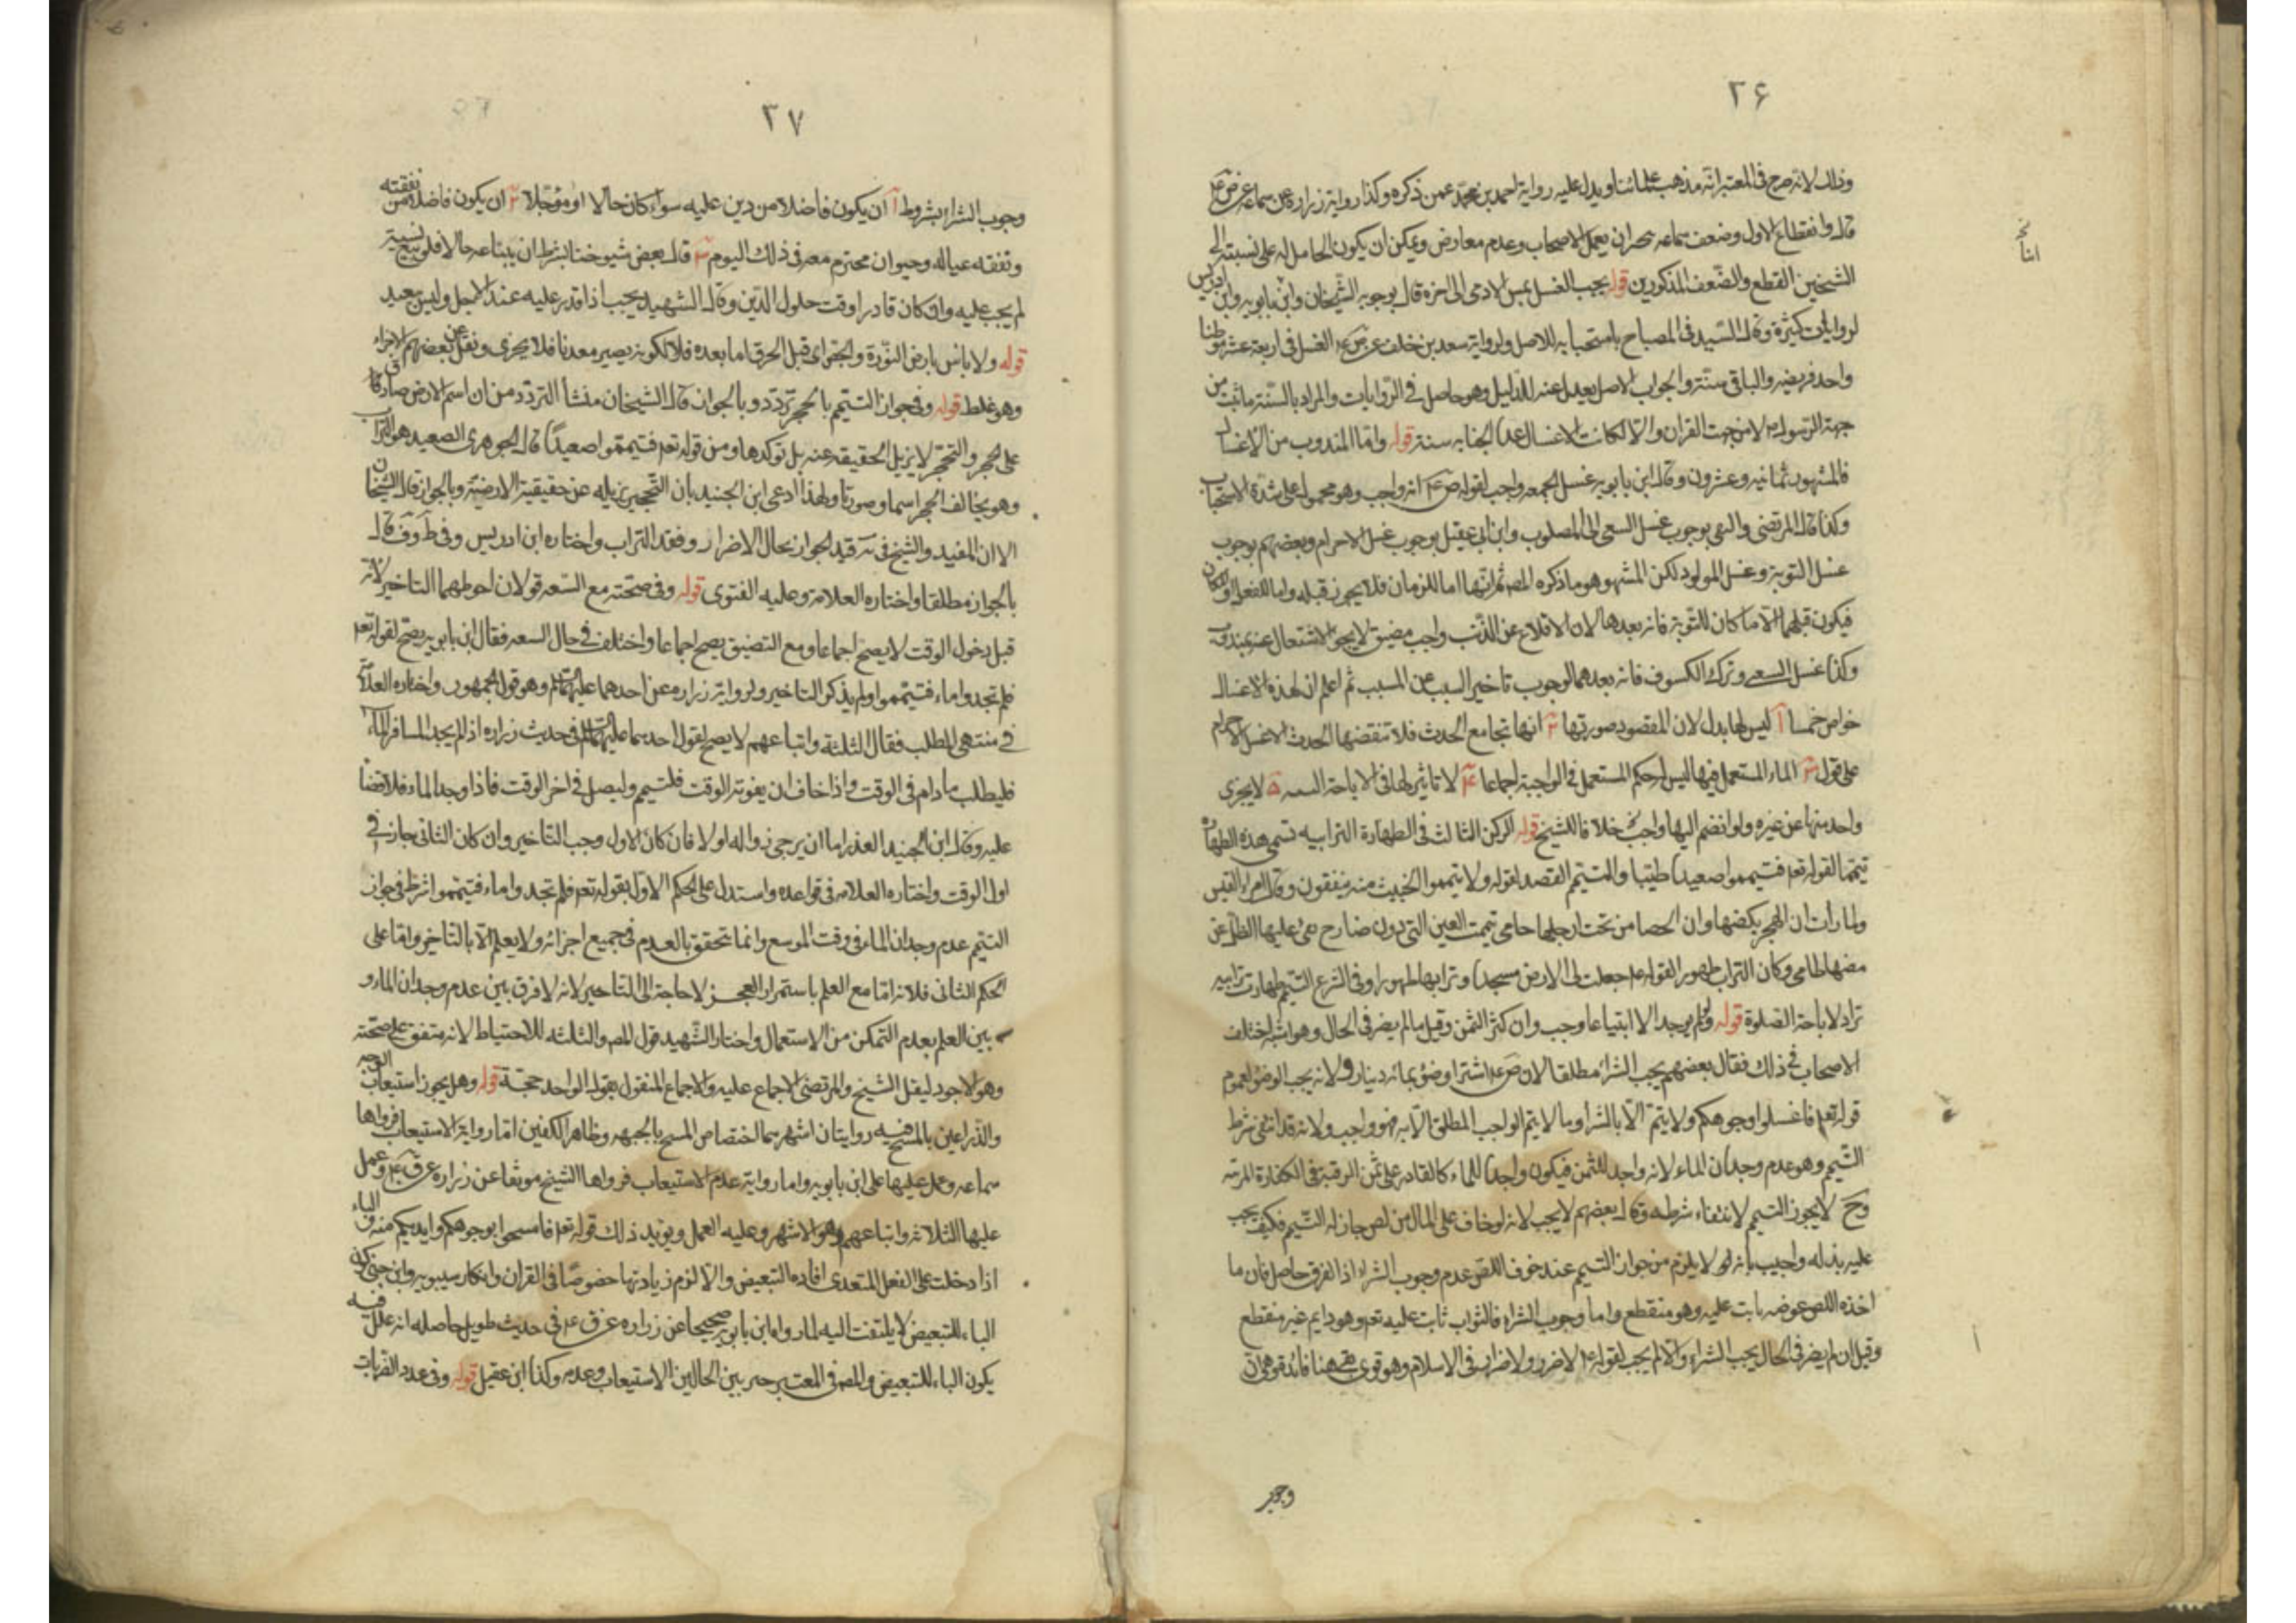 ۳۶
وذلك لانه صرح فى المعتبر انّه مذهب علمائنا ويدل عليه رواية احمد بن محمّد عمن ذكره وكذا رواية زراره عن سماعه عن ص ع
قال وانقطاع الاول وضعف سماعه ينجبران بعمل الاصحاب وعدم معارض ويمكن ان يكون الحامل له على نسبته الى
الشيخين القطع والضّعف المذكورين قوله يجب الغسل بمس الادمى الى اخره قال بوجوبه الشيخان وابن بابويه وابن ادريس
لروايات كثيرة وقال السّيد فى المصباح باستحبابه للاصل ولرواية سعد بن خلف عن ص ع الغسل فى اربعة عشر موطنا
واحد فريضه والباقى سنّة والجواب الاصل يعدل عنه للدليل وهو حاصل فى الرّوايات والمراد بالسّنة ما ثبت من
جهة الرّسول ص لا من جهت القران والّا لكانت الاغسال عدا الجنابه سنة قوله وامّا المندوب من الاغسال
فالمشهور ثمانيه وعشرون وقال ابن بابويه غسل الجمعه واجب لقوله ص ع انه واجب وهو محمول على شدة الاستحباب
وكذا قال المرتضى والـ بوجوب غسل السعى الى المصلوب وابن ابى عقيل بوجوب غسل الاحرام وبعضهم بوجوب
غسل التوبة وغسل المولود لكن المشهور هو ما ذكره المصـ ثم انها اما للزمان فلا يجوز قبله واما للفعل او المكان
فيكون قبلهما الّا ما كان للتّوبة فانه بعدها لان الاقلاع عن الذّنب واجب مضيق لا يجوز الاشتغال عنه بمندوب
وكذا غسل السعى وترك الكسوف فانه بعدهما لوجوب تاخير السبب عن المسبب ثم اعلم ان لهذه الاغسال
خواص خمسا آ ليس لها بدل لان المقصود صورتها ۲ انها تجامع الحدث فلا تنقضها الحدث الا غسل الاحرام
على قول ۳ الماء المستعمل فيها ليس له حكم المستعمل فى الواجبة اجماعا ۴ لا تاثير لها فى الاباحة ۵ لا يجزى
واحد منها عن غيره ولو انضم اليها واجب خلافا للشيخ قوله الركن الثالث فى الطهارة الترابيه تسمى هذه الطهارة
تيمّما لقوله تعـ فتيمموا صعيدا طيّبا والتيمّم القصد لقوله ولا تيمموا الخبيث منه تنفقون وقال امرء القيس
ولما رأت ان الهجر بكضها وان الحصا من تحت ارجلها حامى تيممت العين التى دون ضارج يفئ عليها الظل عن
مضها طامى وكان التراب طهورا لقوله ع جعلت لى الارض مسجدا وترابها طهورا وفى الشرع التيمّم طهارت ترابيه
تراد لاباحة الصّلوة قوله ولو لم يوجد الا ابتياعا وجب وان كثر الثمن وقيل ما لم يضر فى الحال وهو اشبه اختلف
الاصحاب فى ذلك فقال بعضهم يجب الشراء مطلقا لان ص ع اشترا وضؤ بمائه دينار ولانه يجب الوضؤ لعموم
قوله تعـ فاغسلوا وجوهكم ولا يتمّ الّا بالشرا وما لا يتم الواجب المطلق الّا به فهو واجب ولانه قد انتفى شرط
التّيمم وهو عدم وجدان الماء لانه واجد للثمن فيكون واجدا للماء كالقادر على ثمن الرقبة فى الكفارة المرتبه
وح لا يجوز التيمم لانتفاء شرطه وقال بعضهم لا يجب لانه لو خاف على المال من لص جاز له التّيمم فكيف يجب
عليه بذله واجيب بانه لا يلزم من جواز التيمم عند خوف اللص عدم وجوب الشراء اذ الفرق حاصل فان ما
اخذه اللص عوضه بابت عليه وهو منقطع واما وجوب الشراء فالثواب ثابت عليه تعـ وهو دايم غير منقطع
وقيل ان لم يضر فى الحال يجب الشراء والّا لم يجب لقوله ع لا ضرر ولا ضرار فى الاسلام وهو قوى هنا فائدة
۳۷
وجوب الشراء بشروط آ ان يكون فاضلا من دين عليه سواء كان حالا او مؤجّلا ۲ ان يكون فاضلا من نفقته
ونفقه عياله وحيوان محترم معه فى ذلك اليوم ۳ قال بعض شيوخنا يشترط ان يبتاعه حالا فلو بيع نسيته
لم يجب عليه وان كان قادرا وقت حلول الدّين وقال الشهيد يجب اذا قدر عليه عند الاجل وليس ببعيد
قوله ولا باس بارض النّورة والجص اى قبل الحرق اما بعده فلا لكونه يصير معدنا فلا يجزى ونقل عن بعضهم الاجزاء
وهو غلط قوله وفى جواز التيمّم بالحجر تردّد وبالجواز قال الشيخان منشأ التردّد من ان اسم الارض صادقا
على الحجر والتحجّر لا يزيل الحقيقه عنه بل توكدها ومن قوله تعـ فتيمموا صعيداً قال الجوهرى الصعيد هو التراب
وهو يخالف الحجر اسما وصورتا ولهذا ادعى ابن الجنيد بان التّحجير يزيله عن حقيقية الارضيّة وبالجواز قال الشيخان
الا ان المفيد والشيخ فى يه قيد الجواز بحال الاضرار وفقد التراب واختاره ابن ادريس وفى ط وف قال
بالجواز مطلقا واختاره العلامة وعليه الفتوى قوله وفى صحّته مع السّعه قولان احوطهما التاخير لانّه
قبل دخول الوقت لا يصح اجماعا ومع التضيق يصح اجماعا واختلف فى حال السعه فقال ابن بابويه يصحّ لقوله تعـ
فلم تجدوا ماء فتيمّموا ولم يذكر التاخير ولرواية زراره عن احدهما عليهما السلم وهو قول الجمهور واختاره العلامة
فى منتهى المطلب فقال الثلثة واتباعهم لا يصح لقول احدهما عليهما السلم فى حديث زراره اذا لم يجد المسافر الماء
فليطلب ما دام فى الوقت واذا خاف ان يفوته الوقت فليتيمم وليصل فى اخر الوقت فاذا وجد الماء فلا قضاء
عليه وقال ابن الجنيد العذر اما ان يرجى زواله اولا فان كان الاول وجب التاخير وان كان الثانى جاز فى
اول الوقت واختاره العلامه فى قواعده واستدل على الحكم الاول بقوله تعـ فلم تجدوا ماء فتيمّموا شرط فى جواز
التيمّم عدم وجدان الماء فى وقت الموسع وانما يتحقق بالعدم فى جميع اجزائه ولا يعلم الّا بالتاخير وامّا على
الحكم الثانى فلانه امّا مع العلم باستمرار العجز لا حاجة الى التاخير لانه لا فرق بين عدم وجدان الماء و
بين العلم بعدم التمكن من الاستعمال واختار الشّهيد قول المصـ والثلثه للاحتياط لانه متفق على صحّته
وهو الاجود لنقل الشيخ والمرتضى الاجماع عليه والاجماع المنقول بقول الواحد حجّة قوله وهل يجوز استيعاب الوجه
والذّراعين بالمسح فيه روايتان اشهرهما اختصاص المسح بالجبهه وظاهر الكفين امّا رواية الاستيعاب فرواها
سماعه وعمل عليها على ابن بابويه واما رواية عدم الاستيعاب فرواها الشيخ موثقا عن زراره عن ق ع وعمل
عليها الثلاثه واتباعهم وهو الاشهر وعليه العمل ويويد ذلك قوله تعـ فامسحوا بوجوهكم وايديكم منه والباء
اذا دخلت على الفعل المتعدى افاده التبعيض والّا لزم زيادتها خصوصًا فى القران وانكار سيبويه وابن جنى كون
الباء للتبعيض لا يلتفت اليه لما رواه ابن بابويه صحيحا عن زراره عن ق ع فى حديث طويل حاصله انه علل فيه
يكون الباء للتبعيض والمصـ فى المعتبر خير بين الحالين الاستيعاب وعدمه وكذا ابن عقيل قوله وفى عدد الضربات